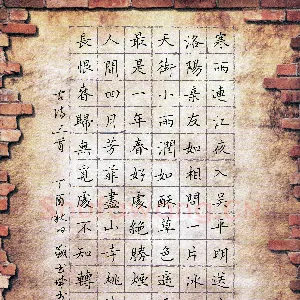 寒雨連江夜入吳平明送
洛陽亲友如相問一片冰
天街小雨潤如酥草色遥
最是一年春好處絕勝煙
人間四月芳菲盡山寺桃
長恨春歸無覓處不知轉
古诗三首 丁酉秋日